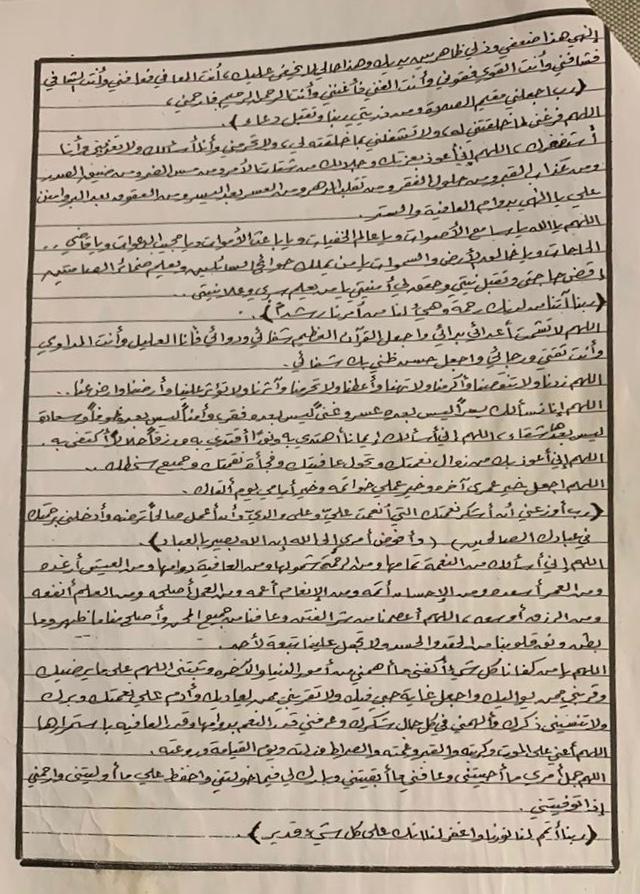 إلهي هذا ضعفي وذلي ظاهر بين يديك وهذا حالي لا يخفى عليك، أنت المعافي فعافني وأنت الشافي
فشافني وأنت القوي فقوني وأنت الغني فأغنني وأنت الرحمن الرحيم فارحمني،
(رب اجعلني مقيم الصلاة ومن ذريتي ربنا وتقبل دعاء).
اللهم فرغني لما خلقتني له، ولا تشغلني بما خلقته لي، ولا تحرمني وأنا أسألك ولا تعذبني وأنا
أستغفرك، اللهم إني أعوذ بعزتك وجلالك من شتات الأمر ومن مس الضر ومن ضيق الصدر
ومن عذاب القبر ومن حلول الفقر ومن تقلب الدهر ومن العسر بعد اليسر ومن العقوق بعد البر وامنن
علي يا إلهي بدوام العافية والستر.
اللهم يا الله يا سامع الأصوات ويا عالم الخفيات ويا باعث الأموات ويا مجيب الدعوات ويا قاضي..
الحاجات ويا خالق الأرض والسموات يا من يملك حوائج السائلين ويعلم ضمائر الصامتين
اقض حاجتي وتقبل نيتي وحقق لي أمنيتي يا من يعلم سري وعلانيتي..
(ربنا آتنا من لدنك رحمة وهيء لنا من أمرنا رشدا)..
اللهم لا تشمت أعدائي بدائي واجعل القرآن العظيم شفائي ودوائي فأنا العليل وأنت المداوي
وأنت ثقتي ورجائي واجعل حسن ظني بك شفائي.
اللهم زدنا ولا تنقصنا وأكرمنا ولا تهنا وأعطنا ولا تحرمنا وآثرنا ولا تؤثر علينا وأرضنا وارض عنا..
اللهم إنا نسألك يسراً ليس بعده عسر وغنى ليس بعده فقر، وأمناً ليس بعده خوفاً وسعادة
ليس بعدها شقاء، اللهم إني أسألك إيمانا أهتدي به ونورا أقتدي به ورزقاً حلالاً أكتفي به.
اللهم إني أعوذ بك من زوال نعمتك وتحول عافيتك وفجأة نقمتك وجميع سخطك..
اللهم اجعل خير عمري آخره وخير عملي خواتمه وخير أيامي يوم ألقاك.
(رب أوزعني أن أشكر نعمتك التي أنعمت علي وعلى والدي وأن أعمل صالحا ترضه وأدخلني برحمتك
في عبادك الصالحين) (وأفوض أمري إلى الله إن الله بصير بالعباد).
اللهم إني أسألك من النعمة تمامها ومن الرحمة شمولها ومن العافية دوامها ومن العيش أرغده
ومن العمر أسعده ومن الإحسان أتمه ومن الإنعام أعمه ومن العمل أصلحه ومن العلم أنفعه
ومن الرزق أوسعه، اللهم أعصمنا من شر الفتن وعافنا من جميع المحن وأصلح منا ما ظهر وما
بطن ونق قلوبنا من الحقد والحسد ولا تجعل علينا تبعة لأحد.
اللهم يا من كفانا كل شيء أكفني ما أهمني من أمور الدنيا والآخرة وثبتني اللهم على ما يرضيك
وقربني ممن يواليك واجعل غاية حبي فيك ولا تقربني ممن يعاديك وأدم علي نعمتك وبرك
ولا تنسني ذكرك وألهمني في كل حال شكرك وعرفني قدر النعم بدوامها وقدر العافية باستمرارها
اللهم أعني على الموت وكربته والقبر وغمته والصراط وزلته ويوم القيامة وروعته.
اللهم جمل أمري ما أحييتني وعافني ما أبقيتني وبارك لي فيما خولتني واحفظ علي ما أوليتني وارحمني
إذا توفيتني.
(ربنا أتمم لنا نورنا واغفر لنا إنك على كل شيء قدير).